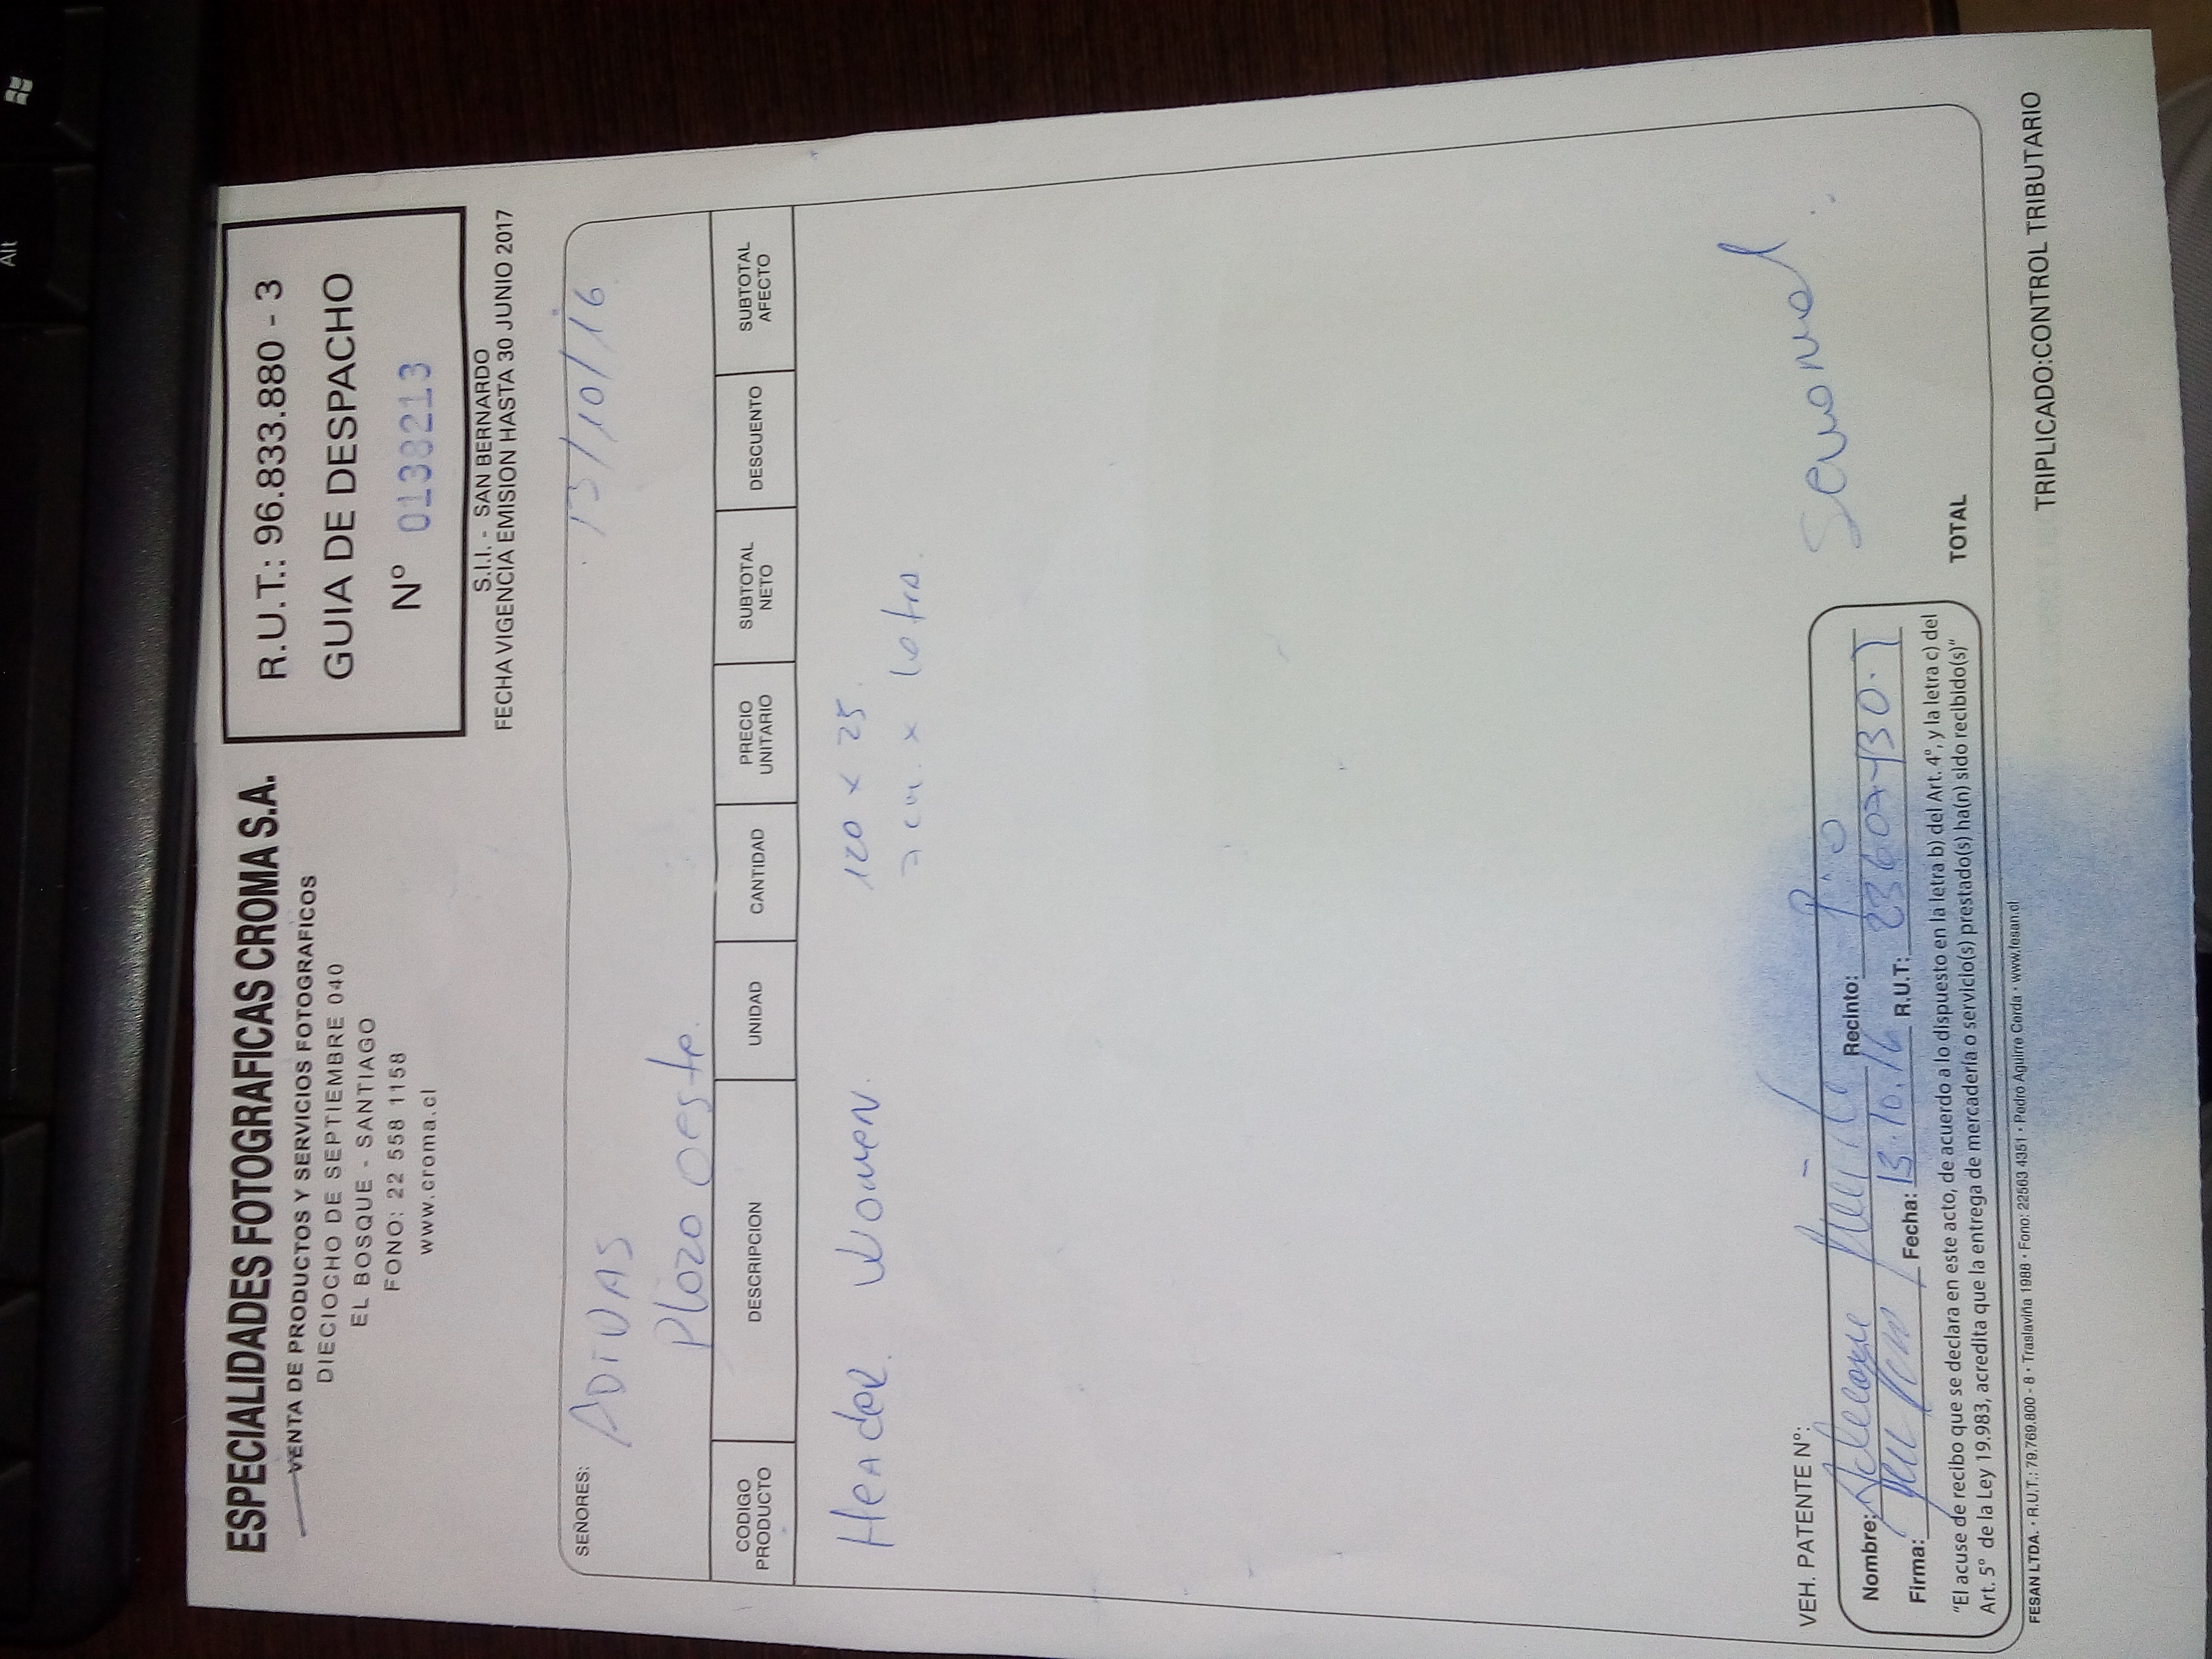 Alt
ESPECIALIDADES FOTOGRAFICAS CROMA S.A.
VENTA DE PRODUCTOS Y SERVICIOS FOTOGRAFICOS
DIECIOCHO DE SEPTIEMBRE 040
EL BOSQUE - SANTIAGO
FONO: 22 558 1158
www.croma.cl
R.U.T.: 96.833.880 - 3
GUIA DE DESPACHO
Nº 0138213
S.I.I. - SAN BERNARDO
FECHA VIGENCIA EMISION HASTA 30 JUNIO 2017
SEÑORES: ADIDAS 13/10/16
Plaza oeste.
CODIGO PRODUCTO DESCRIPCION UNIDAD CANTIDAD PRECIO UNITARIO SUBTOTAL NETO DESCUENTO SUBTOTAL AFECTO
HeAdeR. WomeN. 120 x 25.
7 cm. x letra.
VEH. PATENTE Nº:
Nombre: Recinto:
Firma: Fecha: 13.10.16 R.U.T:
"El acuse de recibo que se declara en este acto, de acuerdo a lo dispuesto en la letra b) del Art. 4º, y la letra c) del
Art. 5º de la Ley 19.983, acredita que la entrega de mercadería o servicio(s) prestado(s) ha(n) sido recibido(s)"
Semanal.
TOTAL
FESAN LTDA. • R.U.T.: 79.769.800 - 8 • Traslaviña 1988 • Fono: 22563 4351 • Pedro Aguirre Cerda • www.fesan.cl
TRIPLICADO:CONTROL TRIBUTARIO